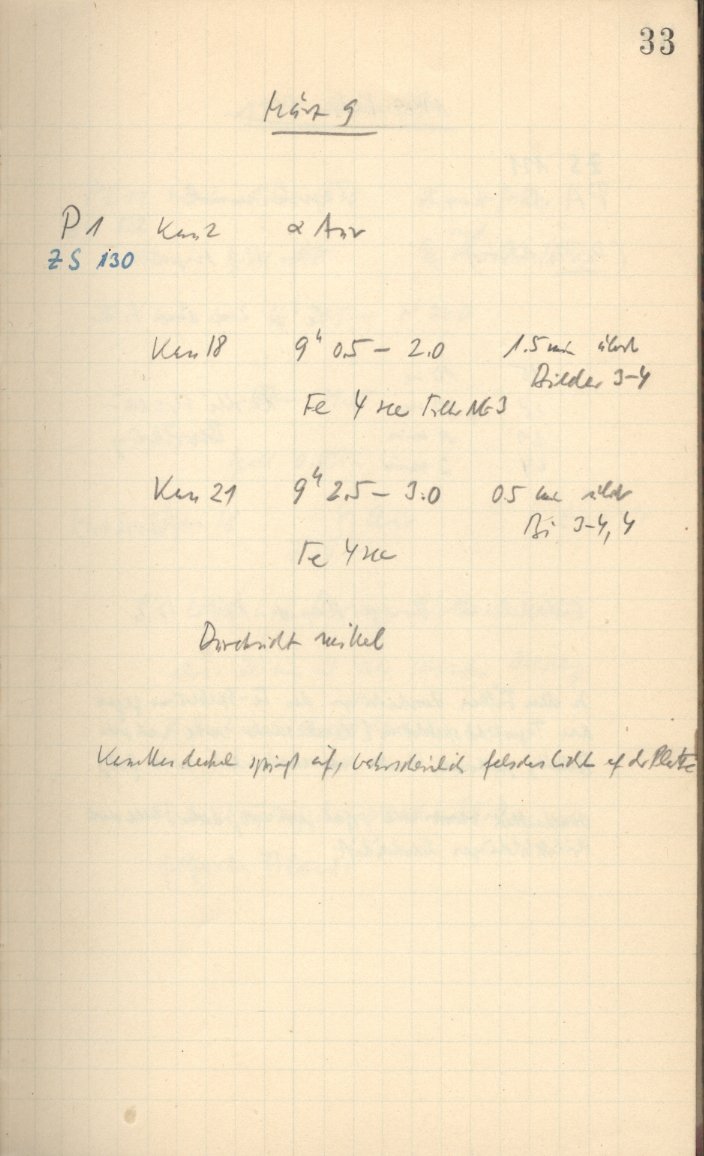 33
März 9
P 1 Kam 2 α Aur
ZS 130
Kam 18 9h 0.5 – 2.0 1.5 min
Bilder 3–4
Fe 4 sec Filter NG 3
Kam 21 9h 2.5 – 3.0 0.5 min
Bi 3–4, 4
Fe 4 sec
Durchsicht mittel
Kassettendeckel springt auf, wahrscheinlich falsches Licht auf der Platte